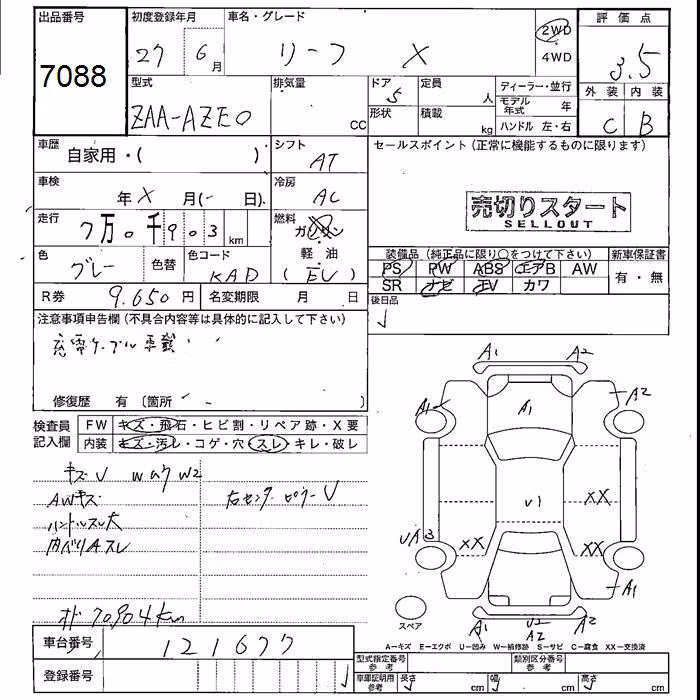 出品番号
7088
初度登録年月
27 6月
車名・グレード
リーフ X
2WD
4WD
評価点
3.5
外装 内装
C B
型式
ZAA-AZE0
排気量
cc
ドア
5
形状
定員
人
積載
kg
ディーラー・並行
モデル年式 年
ハンドル 左・右
車歴
自家用・( )
シフト
AT
セールスポイント(正常に機能するものに限ります)
車検
年 X 月(- 日)
冷房
AC
売切りスタート
SELLOUT
走行
7万0千903km
燃料
ガソリン
軽・油
(EV)
色
グレー
色替
色コード
KAD
装備品(純正品に限り○をつけて下さい)
新車保証書
PS PW ABS エアB AW
SR ナビ TV カワ
有・無
R券
9.650円
名変期限 月 日
後日品
注意事項申告欄(不具合内容等は具体的に記入して下さい)
充電ケーブル車載
修復歴 有 〔箇所 〕
検査員
記入欄
FW キズ・飛石・ヒビ割・リペア跡・X要
内装 キズ・汚レ・コゲ・穴・スレ・キレ・破レ
キズV Wカク W2
AWキズ
右センターピラーV
ハンドルスレ大
内ベリAスレ
オド 70904km
A1 A2
A1 A1 A2
U1 XX
UA3 XX XX
A1
スペア
A1 U2 A2 A1
A―キズ E―エクボ U―凹み W―補修跡 S―サビ C―腐食 XX―交換済
車台番号
121677
登録番号
型式指定番号
参考
類別区分番号
参考
車庫証明用
参考
長さ cm 幅 cm 高さ cm